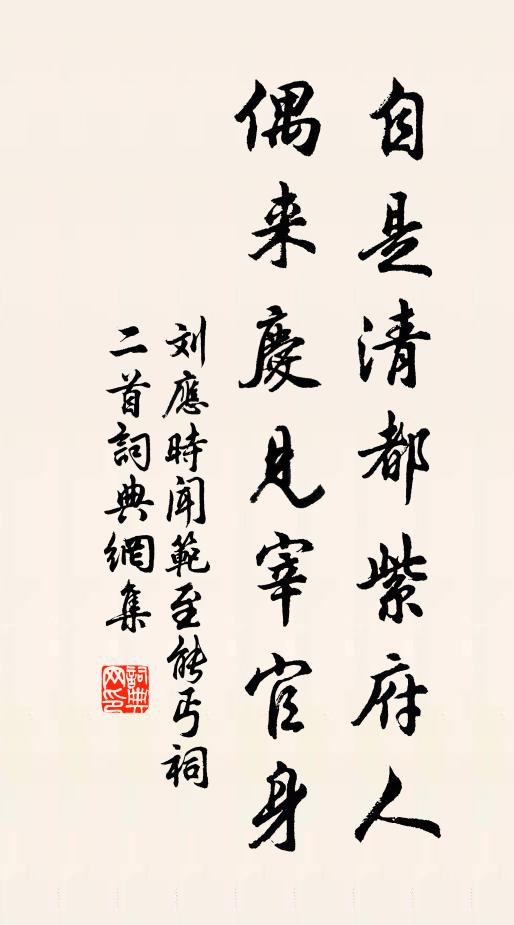 自是清都紫府人
偶来慶見宰官身
刘應時闻範至能丐祠
二首詞典網集
詞典网印